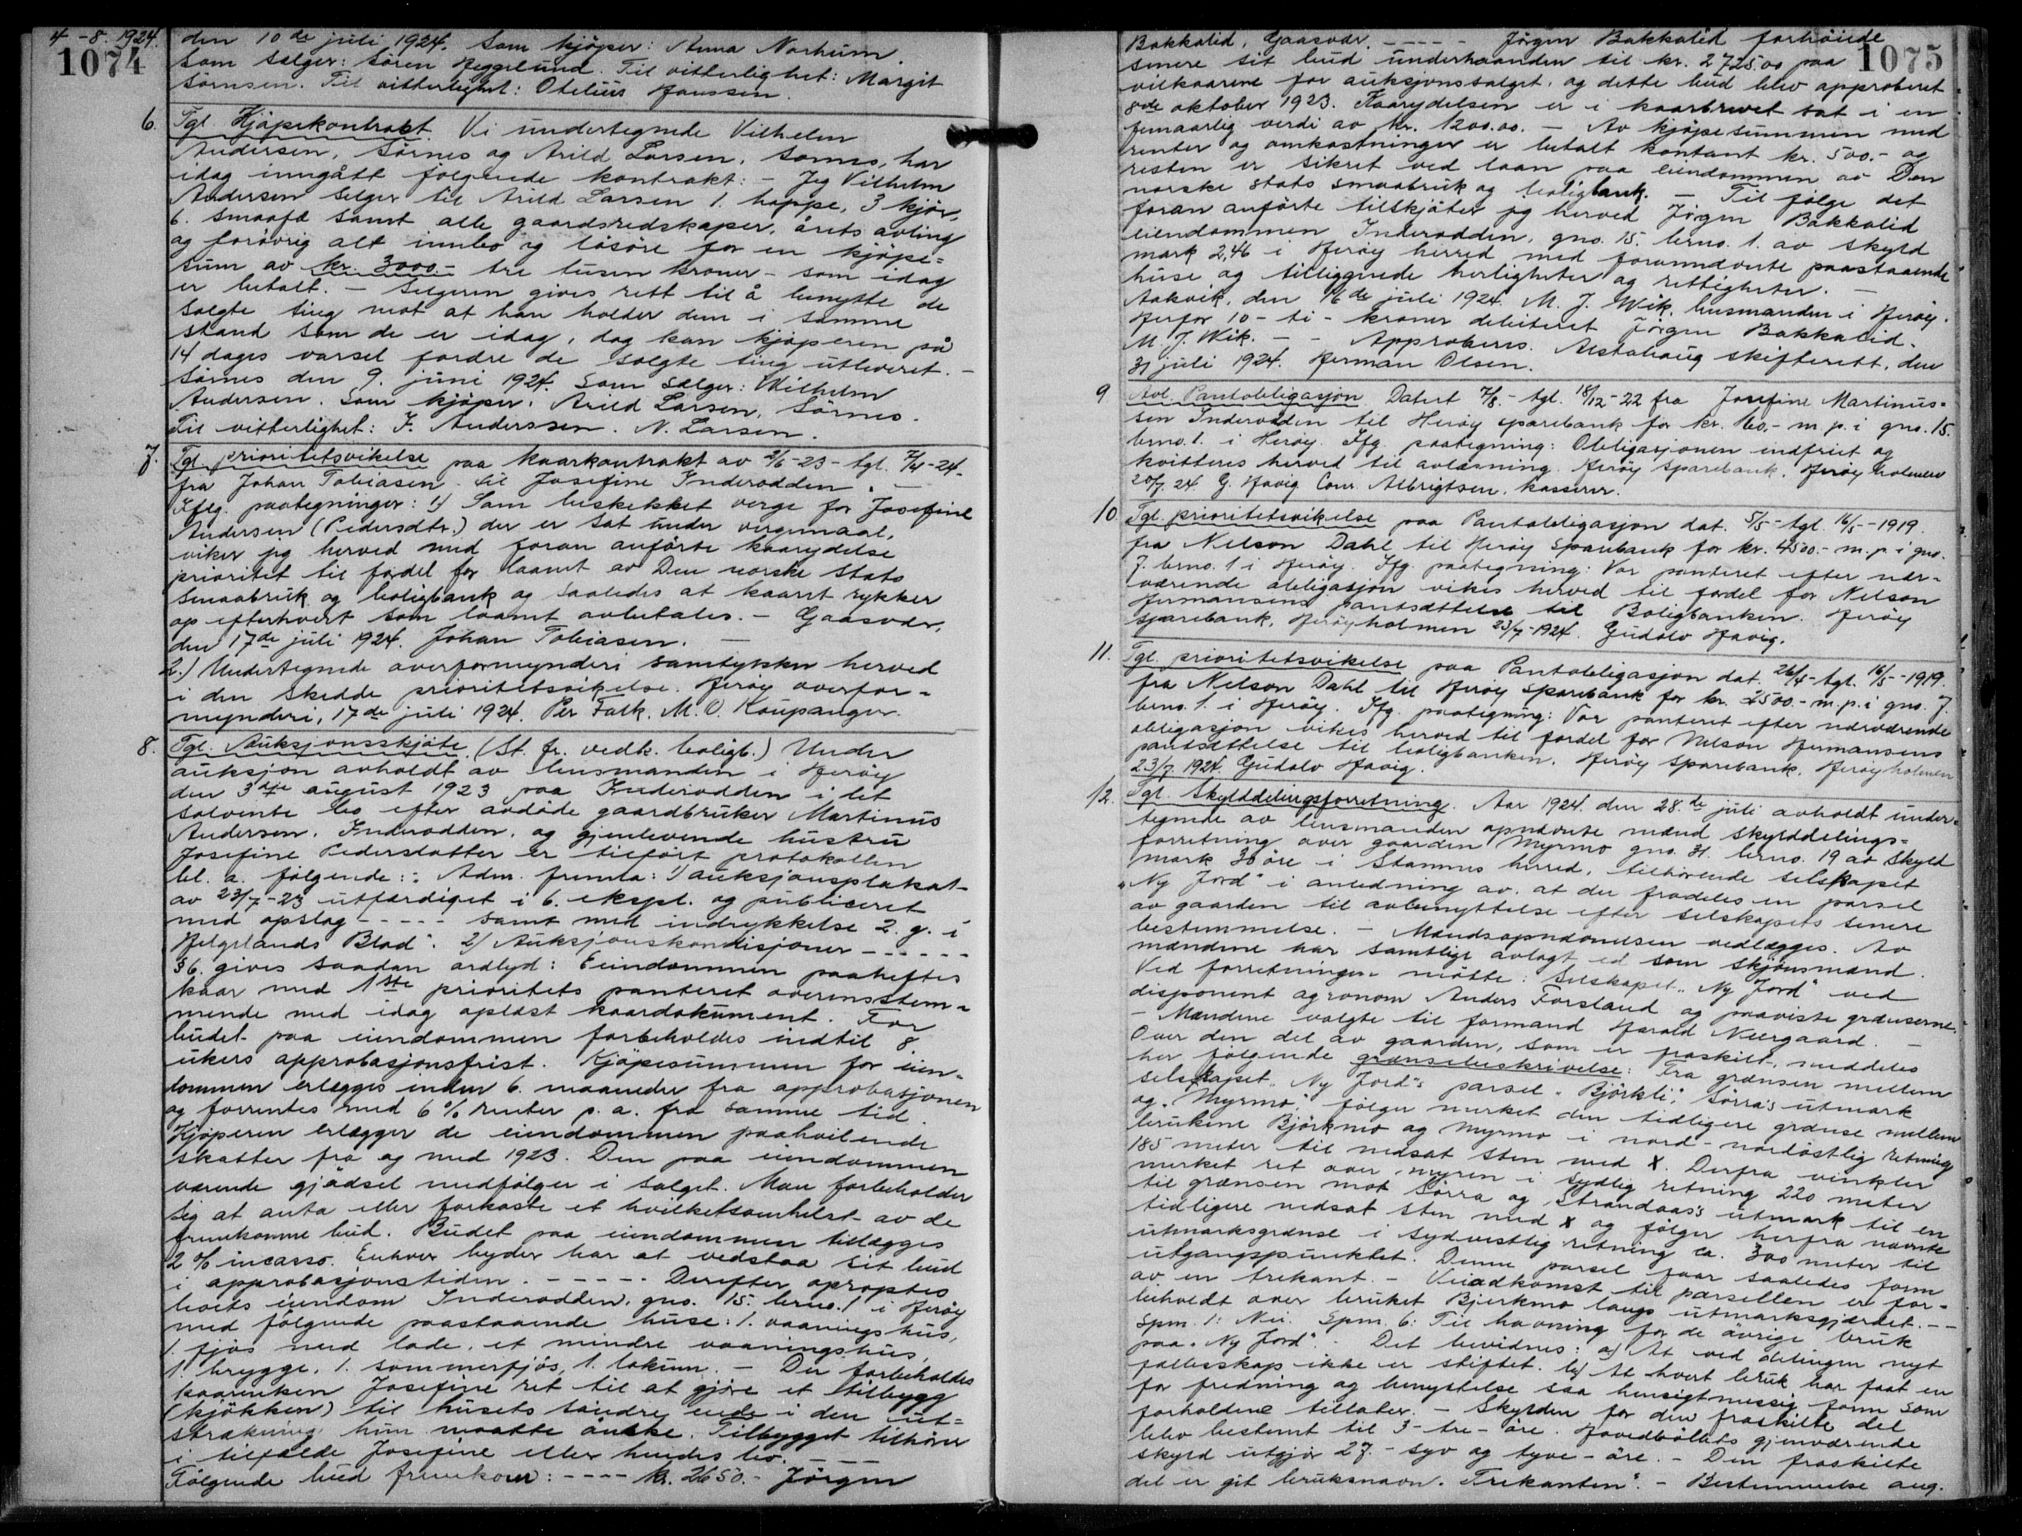 4 - 8. 1924.
1074
den 10de juli 1924. Som kjøper: Anna Norhum.
Som selger: Sören Heggelund. Til vitterlighet: Margit
Sörnsen. Til vitterlighet: Otelius Hanssen.
6. Tgl. Kjøpekontrakt. Vi undertegnede Vilhelm
Andersen, Sörnes og Arild Larsen, Sörnes, har
idag inngått følgende kontrakt: - Jeg Vilhelm
Andersen selger til Arild Larsen 1. hoppe, 3 kjør,
6. smaafæ samt alle gaardsredskaper, årets avling
og forøvrig alt innbo og løsøre for en kjøpe=
sum av kr. 3000.- tre tusen kroner - som idag
er betalt. - Selgeren gives rett til å benytte de
solgte ting mot at han holder dem i samme
stand som de er idag, dog kan kjøperen på
14 dages varsel fordre de solgte ting utleveret. -
Sörnes den 9. juni 1924. Som selger: Wilhelm
Andersen. Som kjøper: Arild Larsen, Sörnes.
Til vitterlighet: F. Anderssen. N. Larsen.
7. Tgl. prioritetsvikelse paa kaarkontrakt av 2/6-23 - tgl. 7/4-24.
fra Johan Tobiasen til Josefine Inderodden. -
Iflg. paategninger: 1) Som beskikket verge for Josefine
Andersen (Pedersdtr.) der er sat under vergemaal,
viker jeg herved med foran anførte kaarydelse
prioritet til fordel for laanet av Den norske stats
smaabruk og boligbank og saaledes at kaaret rykker
op efterhvert som laanet avbetales. - Gaasvær,
den 17de juli 1924. Johan Tobiasen. -
2.) Undertegnede overformynderi samtykker herved
i den skedde prioritetsvikelse. Herøy overfor-
mynderi, 17de juli 1924. Per Falk. M. O. Kaupanger.
8. Tgl. Auksjonsskjøte. (St. fr. vedk. boligb.) Under
auksjon avholdt av lensmanden i Herøy
den 3dje august 1923 paa Inderodden i det
solvente bo efter avdøde gaardbruker Martinus
Andersen, Inderodden, og gjenlevende hustru
Josefine Pedersdatter er tilført protokollen
bl. a. følgende: : Adm. fremla: 1) auksjonsplakat
av 23/7-23 utfærdiget i 6. ekspl. og publiceret
med opslag - - - - - samt med indrykkelse 2. g. i
Helgelands Blad". 2) Auksjonskondisjoner - - - - - -
§ 6. gives saadan ordlyd: Eiendommen paaheftes
kaar med 1ste prioritets panteret overensstem-
mende med idag oplæst kaardokument. For
budet paa eiendommen forbeholdes indtil 8
ukers approbasjonsfrist. Kjøpesummen for eien-
dommen erlægges inden 6. maaneder fra approbasjonen
og forrentes med 6 % renter p. a. fra samme tid.
Kjøperen erlægger de eiendommen paahvilende
skatter fra og med 1923. Den paa eiendommen
værende gjødsel medfølger i salget. Man forbeholder
sig at anta eller forkaste et hvilketsomhelst av de
fremkomne bud. Budet paa eiendommen tillægges
2 % incasso. Enhver byder har at vedstaa sit bud
i approbasjonstiden. - - - - - Derefter opropes
boets eiendom Inderodden, gno. 15. brno. 1 i Herøy
med følgende paastaaende huse: 1. vaaningshus,
1. fjøs med lade, et mindre vaaningshus,
1. brygge, 1. sommerfjøs, 1. lokum. - Der forbeholdes
kaarenken Josefine ret til at gjøre et tilbygg
(kjøkken) til husets søndre ende i den ut=
strækning hun maatte ønske. Tilbygget tilhører
i tilfælde Josefine eller hendes bo. - - -
Følgende bud fremkom: - - - - kr. 2650.- Jørgen
1075
Bakkalid, Gaasvær. - - - - - Jørgen Bakkalid forhøiede
senere sit bud underhaanden til kr. 2725.00 paa
vilkaarene for auksjonssalget, og dette bud blev approberet
8de oktober 1923. Kaarydelsen er i kaarbrevet sat i en
femaarlig verdi av kr. 1200.00. - Av kjøpesummen med
renter og omkostninger er betalt kontant kr. 500.- og
resten er sikret ved laan paa eiendommen av Den
norske stats smaabruk og boligbank. - Til følge det
foran anførte tilskjøter jeg herved Jørgen Bakkalid
eiendommen Inderodden, gno. 15. brno. 1. av skyld
mark 2,46 i Herøy herred med forannævnte paastaaende
huse og tilliggende herligheter og rettigheter. -
Aakvik, den 16de juli 1924. M. J. Wik. lensmanden i Herøy.
Herfor 10 - ti - kroner debiteret Jørgen Bakkalid.
M. J. Wik. - - Approberes. Alstahaug skifterett, den
31 juli 1924. Herman Olsen.
9 Avl. Pantobligasjon. Datert 7/8. - tgl. 18/12-22 fra Josefine Martinus=
sen Inderodden til Herøy sparebank for kr. 160.- m. p. i gno. 15.
brno. 1. i Herøy. Ifg. paategning: Obligasjonen indfriet og
kvitteres herved til avlæsning. Herøy sparebank, Herøyholmen
20/7. 24 G. Havig Conr. Albrigtsen. kasserer.
10. Tgl. prioritetsvikelse paa Pantobligasjon dat. 5/5 - tgl. 16/5 - 1919.
fra Nelson Dahl til Herøy sparebank for kr. 4500.- m. p. i gno.
7. brno. 1 i Herøy. Ifg. paategning: Vor panteret efter nær-
værende obligasjon vikes herved til fordel for Nelson
Hermansens pantsættelse til Boligbanken. Herøy
sparebank, Herøyholmen 23/7-1924. Gudolv Havig.
11. Tgl. prioritetsvikelse paa Pantobligasjon dat. 26/4 - tgl. 16/5 - 1919.
fra Nelson Dahl til Herøy sparebank for kr. 2500.- m. p. i gno. 7.
brno. 1. i Herøy. Ifg. paategning: Vor panteret efter nærværende
obligasjon vikes herved til fordel for Nelson Hermansens
pantsettelse til boligbanken. Herøy sparebank, Herøyholmen
23/7. 1924. Gudolv Havig.
12. Tgl. Skylddelingsforretning. Aar 1924. den 28.de juli avholdt under=
tegnede av lensmanden opnævnte mænd skylddelings=
forretning over gaarden Myrmo gno. 31. brno. 19 av skyld
mark 30 øre i Stamnes herred, tilhørende selskapet
"Ny Jord" i anledning av, at der fradeles en parsel
av gaarden til avbenyttelse efter selskapets senere
bestemmelse. - Mændsopnævnelsen vedlægges. Av
mændene har samtlige avlagt ed som skjønsmænd.
Ved forretningen møtte: Selskapet "Ny Jord" ved
disponent agronom Anders Forsland og paaviste grænserne.
- Mændene valgte til formand Harald Neergaard. -
Over den del av gaarden, som er fraskilt, meddeles
her følgende grænsebeskrivelse: Fra grænsen mellem
selskapet "Ny Jord"s parsel "Björkli", Sørra's utmark
og "Myrmo", følger merket den tidligere grænse mellem
brukene Björkmo og Myrmo i nord - nordøstlig retning
185 meter til nedsat sten med X. Derfra vinkler
merket ret over myren i sydlig retning 220 meter
til grænsen mot Sørra og Strandaas's utmark til en
tidligere nedsat sten med X og følger herfra nævnte
utmarksgrænse i sydvestlig retning ca. 300 meter til
utgangspunktet. Denne parsel faar saaledes form
av en trekant. - Veiadkomst til parsellen er for-
beholdt over bruket Bjerkmo langs utmarksgjærdet. - -
Spm. 1: Nei. Spm. 6: Til havning for de øvrige bruk
paa "Ny Jord". - Det bevidnes: a) At ved delingen nyt
fællesskap ikke er stiftet. b) At hvert bruk har faat en
for fredning og benyttelse saa hensigtmessig form som
forholdene tillater. - Skylden for den fraskilte del
blev bestemt til 3 - tre - øre. Hovedbøllets gjenværende
skyld utgjør 27. - syv og tyve - øre. - Den fraskilte
del er git bruksnavn "Trekanten". - Bestemmelse ang.